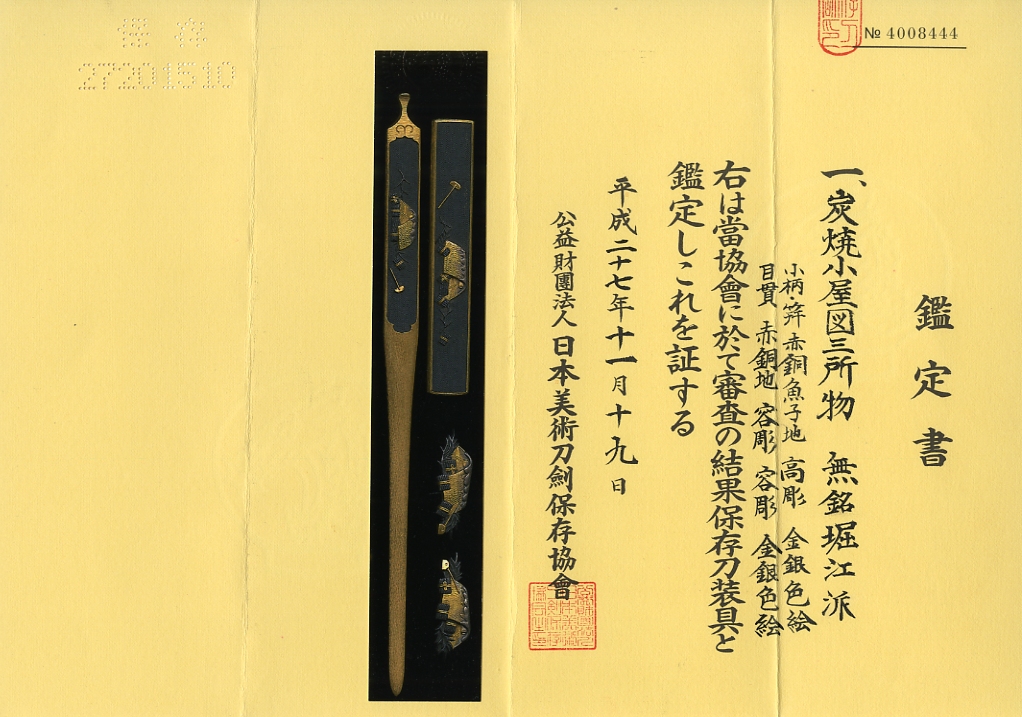 № 4008444
鑑定書
一、炭焼小屋図三所物 無銘堀江派
小柄・笄 赤銅魚子地 高彫 金銀色絵
目貫 赤銅地 容彫 容彫 金銀色絵
右は當協會に於て審査の結果保存刀装具と
鑑定しこれを証する
平成二十七年十一月十九日
公益財團法人 日本美術刀劍保存協會
保存
27201510